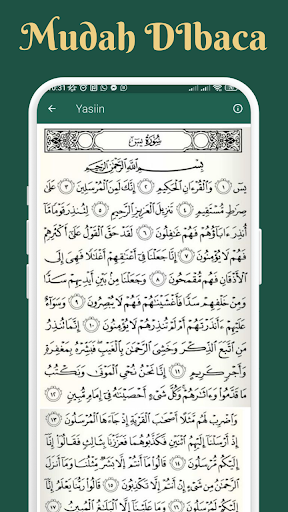 Mudah DIbaca
10:31
Yasiin
سُورَةُ يسٓ
بِسْمِ ٱللَّهِ ٱلرَّحْمَٰنِ ٱلرَّحِيمِ
يسٓ ١ وَٱلْقُرْءَانِ ٱلْحَكِيمِ ٢ إِنَّكَ لَمِنَ ٱلْمُرْسَلِينَ ٣ عَلَىٰ
صِرَٰطٍ مُّسْتَقِيمٍ ٤ تَنزِيلَ ٱلْعَزِيزِ ٱلرَّحِيمِ ٥ لِتُنذِرَ قَوْمًا مَّآ
أُنذِرَ ءَابَآؤُهُمْ فَهُمْ غَٰفِلُونَ ٦ لَقَدْ حَقَّ ٱلْقَوْلُ عَلَىٰٓ أَكْثَرِهِمْ
فَهُمْ لَا يُؤْمِنُونَ ٧ إِنَّا جَعَلْنَا فِىٓ أَعْنَٰقِهِمْ أَغْلَٰلًا فَهِىَ إِلَى
ٱلْأَذْقَانِ فَهُم مُّقْمَحُونَ ٨ وَجَعَلْنَا مِنۢ بَيْنِ أَيْدِيهِمْ سَدًّا
وَمِنْ خَلْفِهِمْ سَدًّا فَأَغْشَيْنَٰهُمْ فَهُمْ لَا يُبْصِرُونَ ٩ وَسَوَآءٌ
عَلَيْهِمْ ءَأَنذَرْتَهُمْ أَمْ لَمْ تُنذِرْهُمْ لَا يُؤْمِنُونَ ١٠ إِنَّمَا تُنذِرُ
مَنِ ٱتَّبَعَ ٱلذِّكْرَ وَخَشِىَ ٱلرَّحْمَٰنَ بِٱلْغَيْبِ فَبَشِّرْهُ بِمَغْفِرَةٍ
وَأَجْرٍ كَرِيمٍ ١١ إِنَّا نَحْنُ نُحْىِ ٱلْمَوْتَىٰ وَنَكْتُبُ
مَا قَدَّمُوا۟ وَءَاثَٰرَهُمْ وَكُلَّ شَىْءٍ أَحْصَيْنَٰهُ فِىٓ إِمَامٍ مُّبِينٍ ١٢
وَٱضْرِبْ لَهُم مَّثَلًا أَصْحَٰبَ ٱلْقَرْيَةِ إِذْ جَآءَهَا ٱلْمُرْسَلُونَ ١٣
إِذْ أَرْسَلْنَآ إِلَيْهِمُ ٱثْنَيْنِ فَكَذَّبُوهُمَا فَعَزَّزْنَا بِثَالِثٍ فَقَالُوٓا۟ إِنَّآ
إِلَيْكُم مُّرْسَلُونَ ١٤ قَالُوا۟ مَآ أَنتُمْ إِلَّا بَشَرٌ مِّثْلُنَا وَمَآ أَنزَلَ